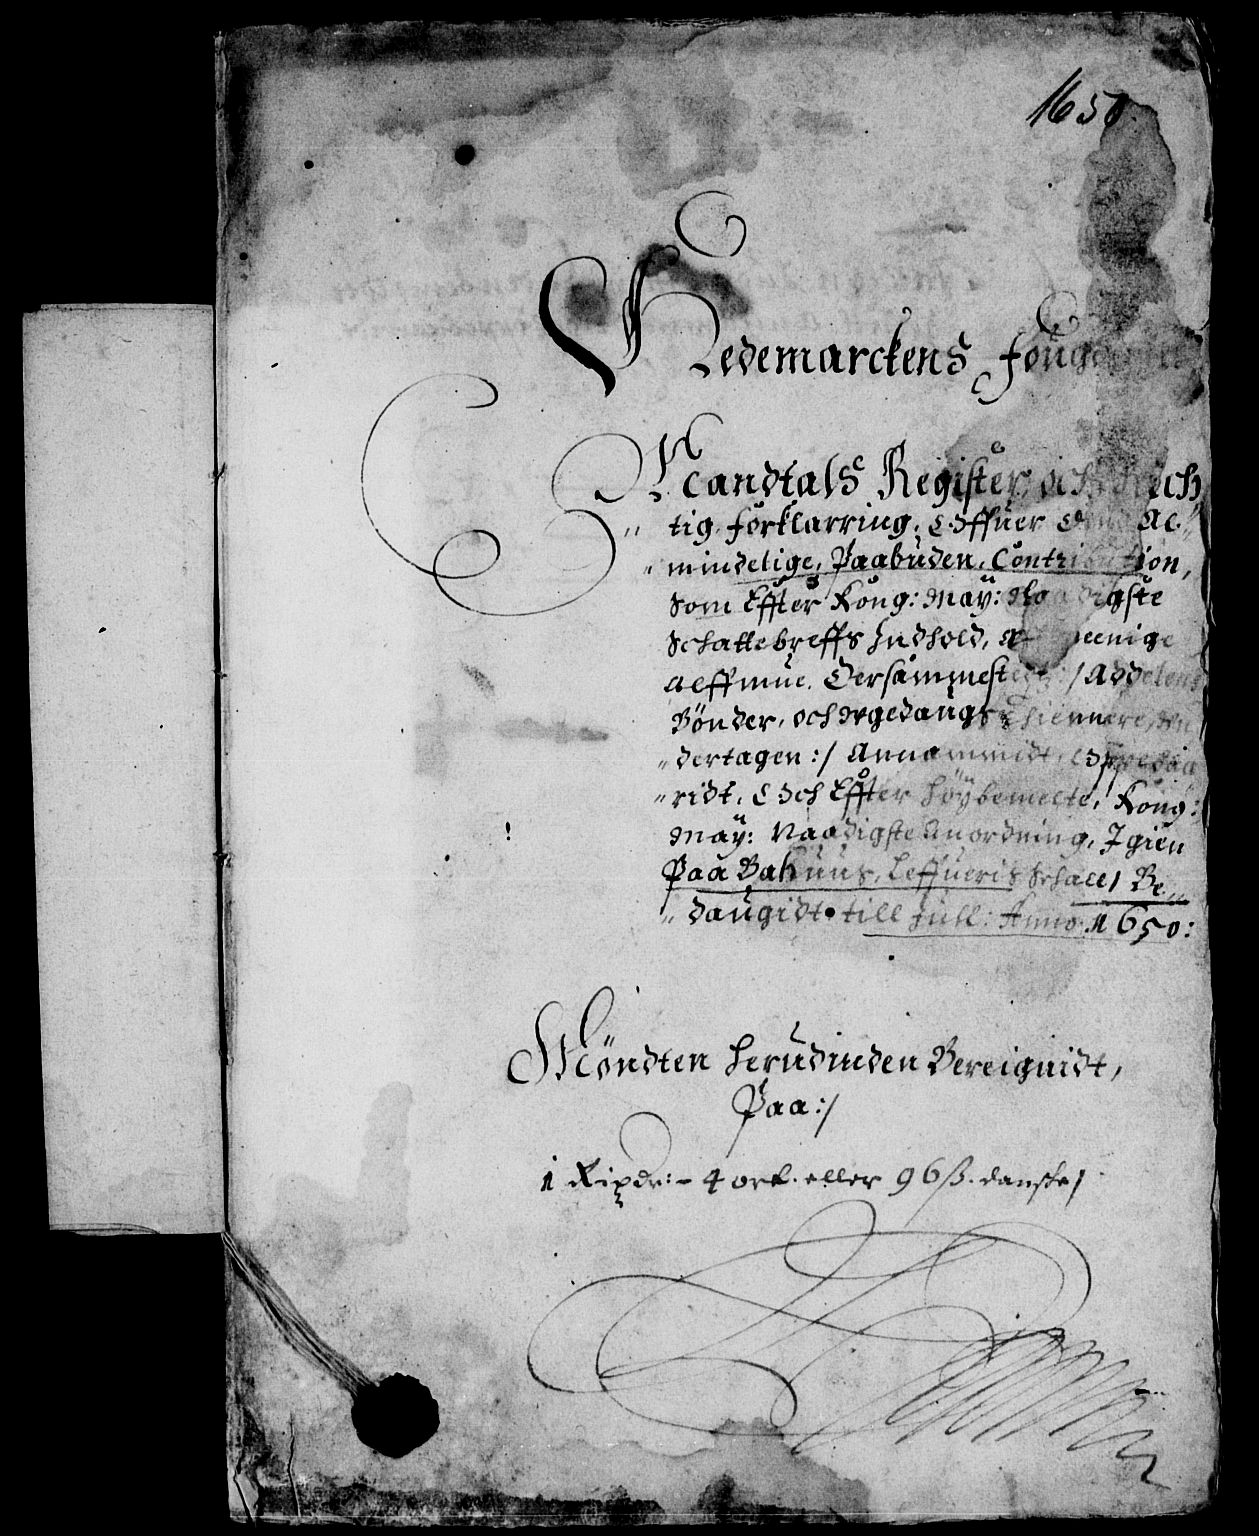 1650.
Hedemarckens foug
Mandtals Register, och Rich
tig forklarring, Offuer Al„
„mindelige, Paabuden, Contribution,
Som Effter Kong: May: Naadigste
Schattebreffs Indhold, meenige
Allmue. Dersammesteds :/ Addelens
Bönder, och Vgedaugs Thiennere, Vn
„dertagen :/ Annammidt,
„ridt, Och Effter höybemelte, Kong:
May: Naadigste Anordning, Igien
Paa Bahuus, Leffueris Schall, Be„
„daugidt till Jull: Anno 1650:
Möndten herudinden Bereignidt,
Paa :/
1 Rixdr: - 4 ort. eller 96 ß. danske /